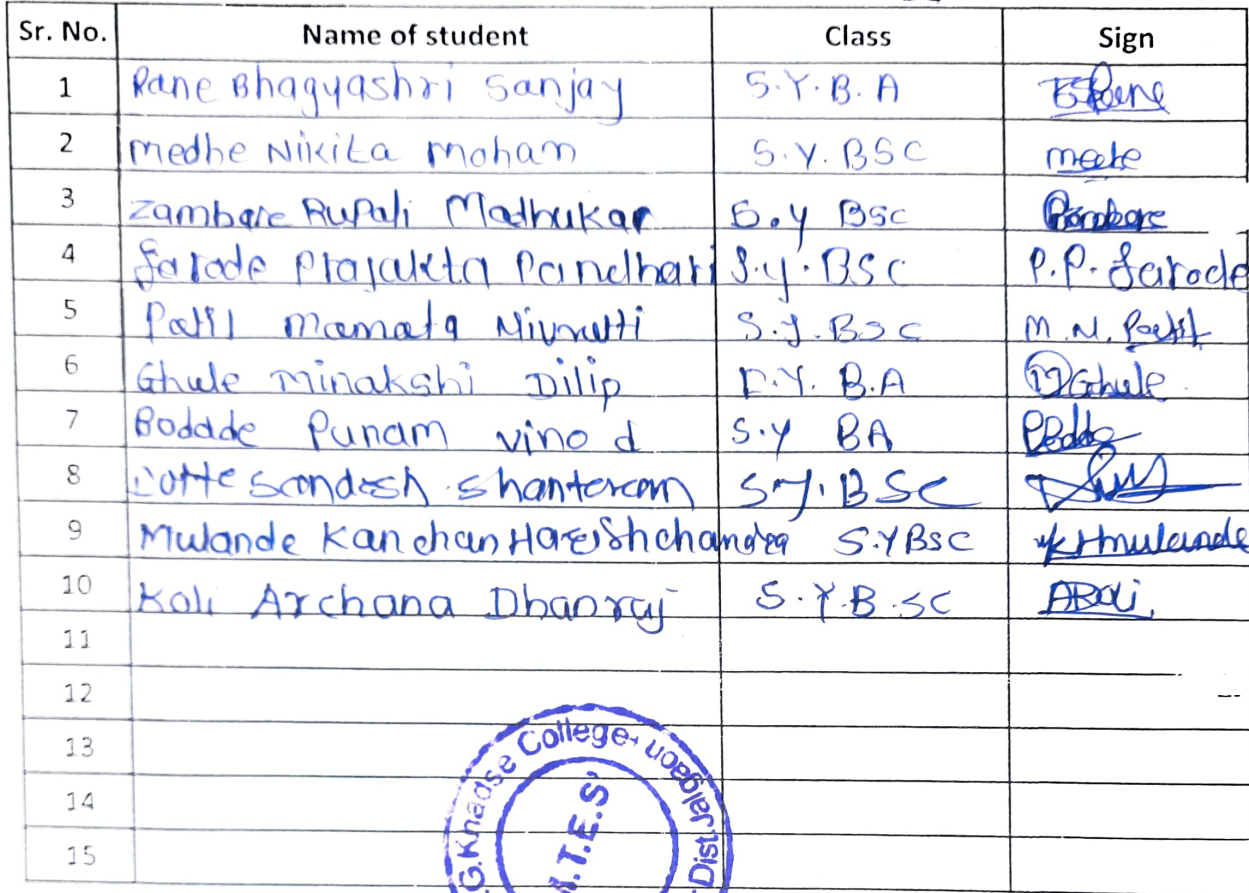 Sr. No. Name of student Class Sign
1 Rane Bhagyashri Sanjay S.Y.B.A
2 Medhe Nikita Mohan S.Y.BSC
3 Zambare Rupali Madhukar S.y BSC
4 Sarode Prajakta Pandhari S.y.BSC P.P. Sarode
5 Patil Mamata Nivrutti S.y.BSC M.N. Patil
6 Ghule Minakshi Dilip F.Y. B.A MGhule
7 Bodade Punam vinod S.y BA
8 Sandesh Shantaram S.Y.BSC
9 Mulande Kanchan Harishchandra S.YBSC
10 Koli Archana Dhanraj S.Y.B.SC
11
12
13
14
15
G.Khadse College, Dist.Jalgaon
M.T.E.S'